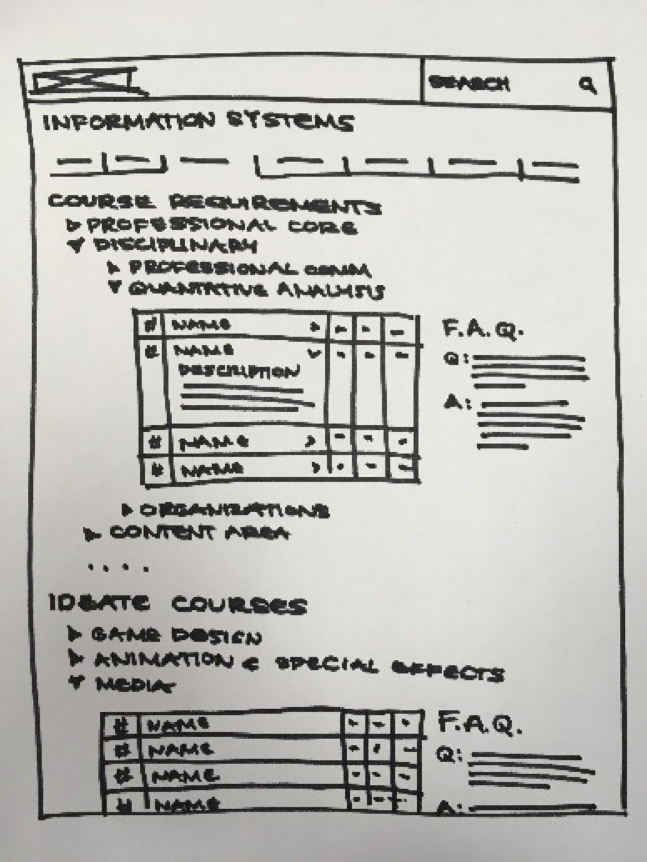 SEARCH
INFORMATION SYSTEMS
COURSE REQUIREMENTS
PROFESSIONAL CORE
DISCIPLINARY
PROFESSIONAL COMM
QUANTATIVE ANALYSIS
# NAME
# NAME
DESCRIPTION
# NAME
# NAME
F.A.Q.
Q:
A:
ORGANIZATIONS
CONTENT AREA
....
IDEATE COURSES
GAME DESIGN
ANIMATION & SPECIAL EFFECTS
MEDIA
# NAME
# NAME
# NAME
# NAME
F.A.Q.
Q:
A: